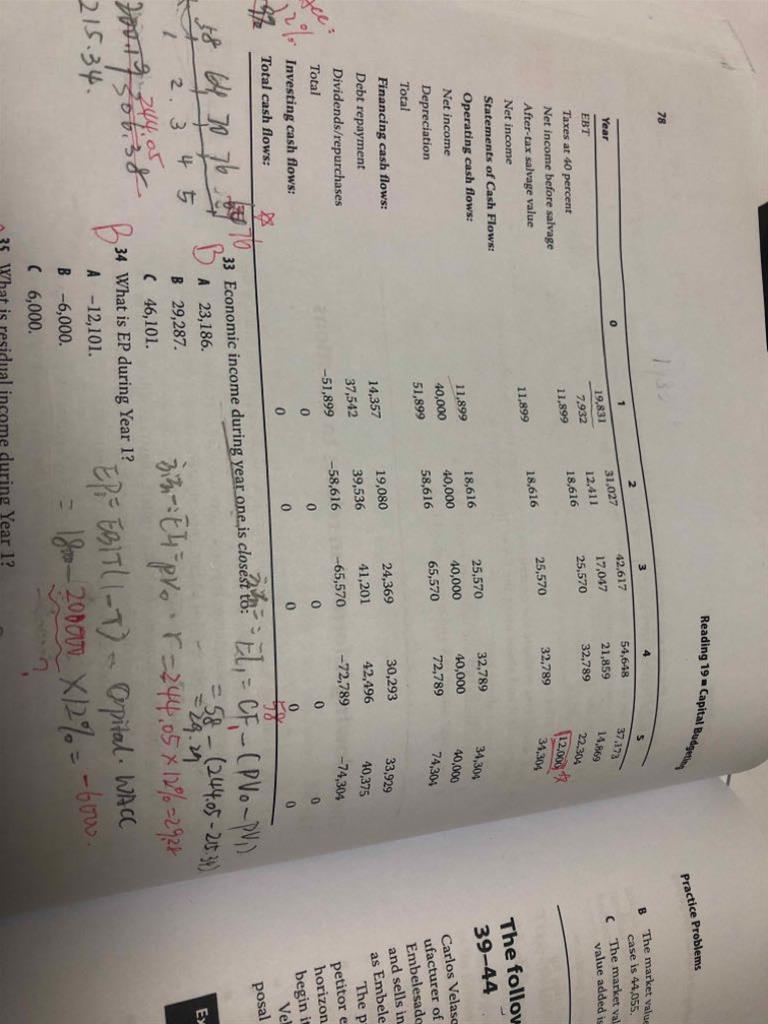 78
Reading 19 ■ Capital Budgeting
Year 0 1 2 3 4 5
EBT 19,831 31,027 42,617 54,648 37,173
Taxes at 40 percent 7,932 12,411 17,047 21,859 14,869
Net income before salvage 11,899 18,616 25,570 32,789 22,304
After-tax salvage value 12,000
Net income 11,899 18,616 25,570 32,789 34,304
Statements of Cash Flows:
Operating cash flows:
Net income 11,899 18,616 25,570 32,789 34,304
Depreciation 40,000 40,000 40,000 40,000 40,000
Total 51,899 58,616 65,570 72,789 74,304
Financing cash flows:
Debt repayment 14,357 19,080 24,369 30,293 33,929
Dividends/repurchases 37,542 39,536 41,201 42,496 40,375
Total −51,899 −58,616 −65,570 −72,789 −74,304
Investing cash flows: 0 0 0 0 0
Total cash flows: 0 0 0 0 0
12%
58 64 70 76
1 2 3 4 5
244.05
215.34.
B
33 Economic income during year one is closest to:
A 23,186.
B 29,287.
C 46,101.
58
EI₁ = CF₁ − (PV₀ − PV₁)
= 58 − (244.05 − 215.34)
= 29.29
EI₁ = PV₀ · r = 244.05 × 12% = 29.28
B
34 What is EP during Year 1?
A −12,101.
B −6,000.
C 6,000.
EP₁ = EBIT(1−T) − Capital · WACC
200000 × 12% = −6000.
35 What is residual income during Year 1?
Practice Problems
B The market valu
case is 44,055.
C The market val
value added is
The follow
39–44
Carlos Velasc
ufacturer of
Embelesado
and sells in
as Embele
The p
petitor e
horizon
begin i
Ve
posal
Ex